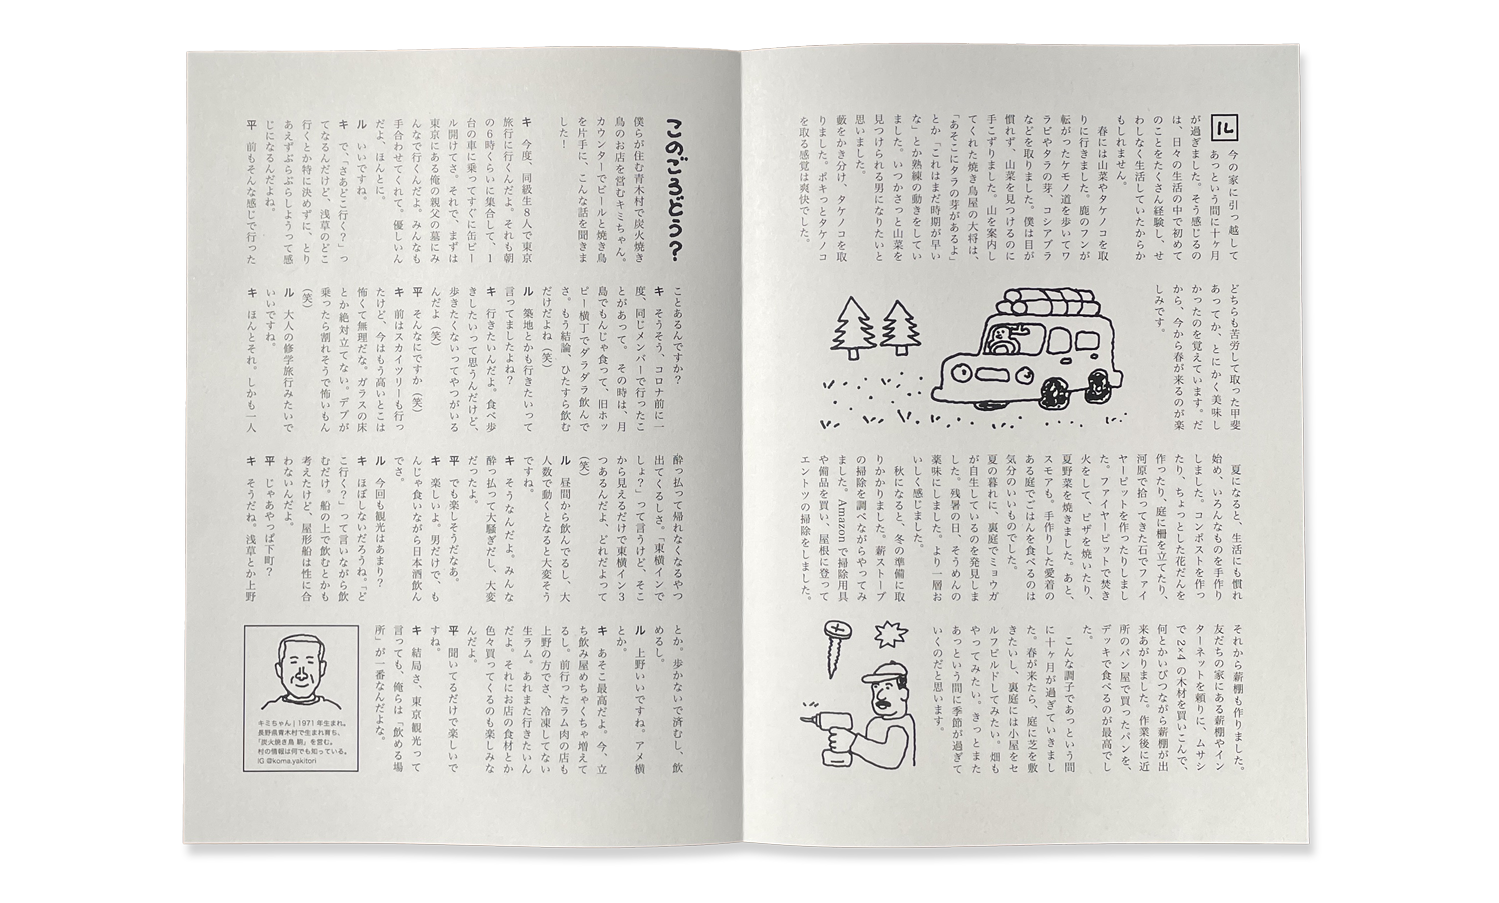 ル
今の家に引っ越して
あっという間に十ヶ月
が過ぎました。そう感じるの
は、日々の生活の中で初めて
のことをたくさん経験し、せ
わしなく生活していたからか
もしれません。
春には山菜やタケノコを取
りに行きました。鹿のフンが
転がったケモノ道を歩いてワ
ラビやタラの芽、コシアブラ
などを取りました。僕は目が
慣れず、山菜を見つけるのに
手こずりました。山を案内し
てくれた焼き鳥屋の大将は、
「あそこにタラの芽があるよ」
とか、「これはまだ時期が早い
な」とか熟練の動きをしてい
ました。いつかさっと山菜を
見つけられる男になりたいと
思いました。
藪をかき分け、タケノコを取
りました。ポキっとタケノコ
を取る感覚は爽快でした。
どちらも苦労して取った甲斐
あってか、とにかく美味し
かったのを覚えています。だ
から、今から春が来るのが楽
しみです。
夏になると、生活にも慣れ
始め、いろんなものを手作り
しました。コンポストを作っ
たり、ちょっとした花だんを
作ったり、庭に柵を立てたり、
河原で拾ってきた石でファイ
ヤーピットを作ったりしまし
た。ファイヤーピットで焚き
火をして、ピザを焼いたり、
夏野菜を焼きました。あと、
スモアも。手作りした愛着の
ある庭でごはんを食べるのは
気分のいいものでした。
夏の暮れに、裏庭でミョウガ
が自生しているのを発見しま
した。残暑の日、そうめんの
薬味にしました。より一層お
いしく感じました。
秋になると、冬の準備に取
りかかりました。薪ストーブ
の掃除を調べながらやってみ
ました。Amazonで掃除用具
や備品を買い、屋根に登って
エントツの掃除をしました。
それから薪棚も作りました。
友だちの家にある薪棚やイン
ターネットを頼りに、ムサシ
で2×4の木材を買いこんで、
何とかいびつながら薪棚が出
来あがりました。作業後に近
所のパン屋で買ったパンを、
デッキで食べるのが最高でし
た。
こんな調子であっという間
に十ヶ月が過ぎていきまし
た。春が来たら、庭に芝を敷
きたいし、裏庭には小屋をセ
ルフビルドしてみたい。畑も
やってみたい。きっとまた
あっという間に季節が過ぎて
いくのだと思います。
このごろどう?
僕らが住む青木村で炭火焼き
鳥のお店を営むキミちゃん。
カウンターでビールと焼き鳥
を片手に、こんな話を聞きま
した!
キ 今度、同級生8人で東京
旅行に行くんだよ。それも朝
の6時くらいに集合して、1
台の車に乗ってすぐに缶ビー
ル開けてさ。それで、まずは
東京にある俺の親父の墓にみ
んなで行くんだよ。みんなも
手合わせてくれて。優しいん
だよ、ほんとに。
ル いいですね。
キ で、「さあどこ行く?」っ
てなるんだけど、浅草のどこ
行くとか特に決めずに、とり
あえずぶらぶらしようって感
じになるんだよね。
平 前もそんな感じで行った
ことあるんですか?
キ そうそう、コロナ前に一
度、同じメンバーで行ったこ
とがあって。その時は、月
島でもんじゃ食って、旧ホッ
ピー横丁でダラダラ飲んで
さ。もう結論、ひたすら飲む
だけだよね(笑)
ル 築地とかも行きたいって
言ってましたよね?
キ 行きたいんだよ。食べ歩
きしたいって思うんだけど、
歩きたくないってやつがいる
んだよ(笑)
平 そんなにですか(笑)
キ 前はスカイツリーも行っ
たけど、今はもう高いとこは
怖くて無理だな。ガラスの床
とか絶対立てない。デブが
乗ったら割れそうで怖いもん
(笑)
ル 大人の修学旅行みたいで
いいですね。
キ ほんとそれ。しかも一人
酔っ払って帰れなくなるやつ
出てくるしさ。「東横インで
しょ?」って言うけど、そこ
から見えるだけで東横イン3
つあるんだよ、どれだよって
(笑)
ル 昼間から飲んでるし、大
人数で動くとなると大変そう
ですね。
キ そうなんだよ。みんな
酔っ払って大騒ぎだし、大変
だったよ。
平 でも楽しそうだなあ。
キ 楽しいよ。男だけで、も
んじゃ食いながら日本酒飲ん
でさ。
ル 今回も観光はあまり?
キ ほぼしないだろうね。「ど
こ行く?」って言いながら飲
むだけ。船の上で飲むとかも
考えたけど、屋形船は性に合
わないんだよ。
平 じゃあやっぱ下町?
キ そうだね。浅草とか上野
とか。歩かないで済むし、飲
めるし。
ル 上野いいですね。アメ横
とか。
キ あそこ最高だよ。今、立
ち飲み屋めちゃくちゃ増えて
るし。前行ったラム肉の店も
上野の方でさ、冷凍してない
生ラム。あれまた行きたいん
だよ。それにお店の食材とか
色々買ってくるのも楽しみな
んだよ。
平 聞いてるだけで楽しいで
すね。
キ 結局さ、東京観光って
言っても、俺らは「飲める場
所」が一番なんだよな。
キミちゃん | 1971年生まれ。
長野県青木村で生まれ育ち、
「炭火焼き鳥 駒」を営む。
村の情報は何でも知っている。
IG @koma.yakitori